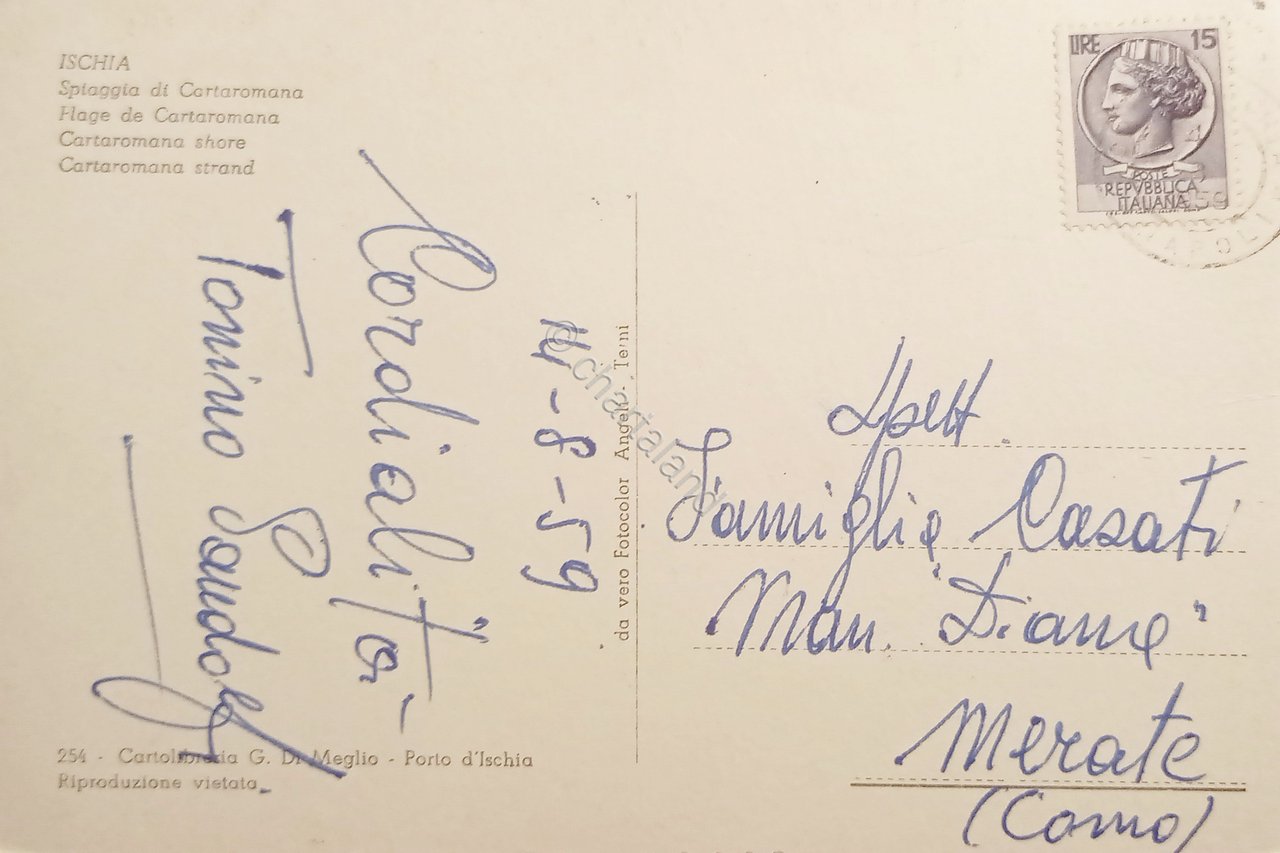 ISCHIA
Spiaggia di Cartaromana
Plage de Cartaromana
Cartaromana shore
Cartaromana strand
Cordialità
Tonino
14-8-59
254 - Cartolibreria G. Di Meglio - Porto d'Ischia
Riproduzione vietata
da vero Fotocolor Angeli - Terni
© chartaland
LIRE 15
POSTE
REPVBBLICA
ITALIANA
NAPOLI
Spett.
Famiglia Casati
Man. "Diana"
Merate
(Como)